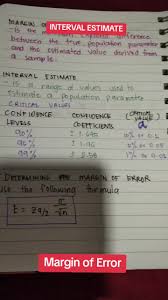 INTERVAL ESTIMATE
MARGIN
is the difference
between the true population parameter
and the estimated value derived from
a sample.
INTERVAL ESTIMATE
is a range of values used to
estimate a population parameter
CRITICAL VALUES
CONFIDENCE CONFIDENCE (CRITICAL
LEVELS COEFFICIENTS VALUE) α
90% ± 1.645 10% or 0.1
95% ± 1.96 5% or
99% ± 2.58 1% or
DETERMINING THE MARGIN OF ERROR
Use the following formula
E = Zα/2 σ/√n
Margin of Error